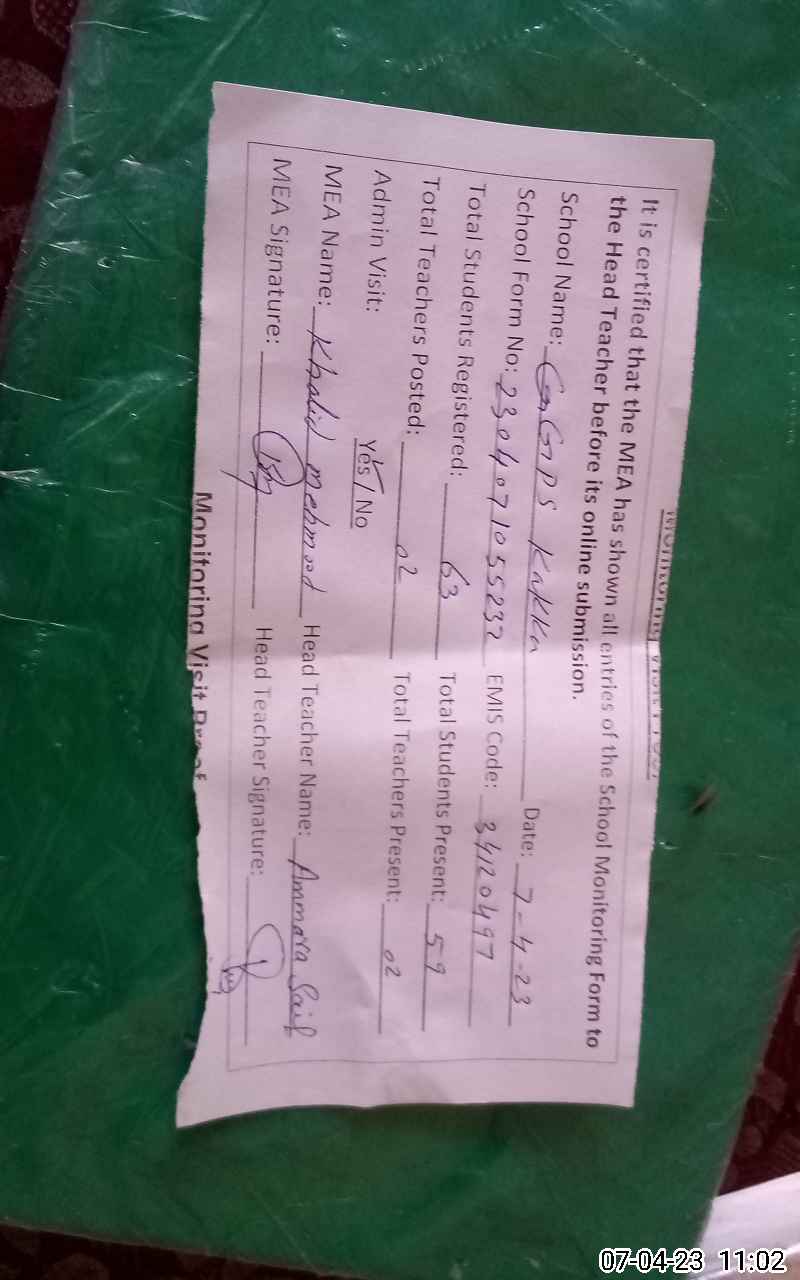 Monitoring Visit Proof
It is certified that the MEA has shown all entries of the School Monitoring Form to
the Head Teacher before its online submission.
School Name: GGPS Kakka Date: 7-4-23
School Form No: 2304071055232 EMIS Code: 34120497
Total Students Registered: 63 Total Students Present: 59
Total Teachers Posted: 02 Total Teachers Present: 02
Admin Visit: Yes / No
MEA Name: Khalid mehmood Head Teacher Name: Ammara Saif
MEA Signature: Head Teacher Signature:
Monitoring Visit Proof
07-04-23 11:02